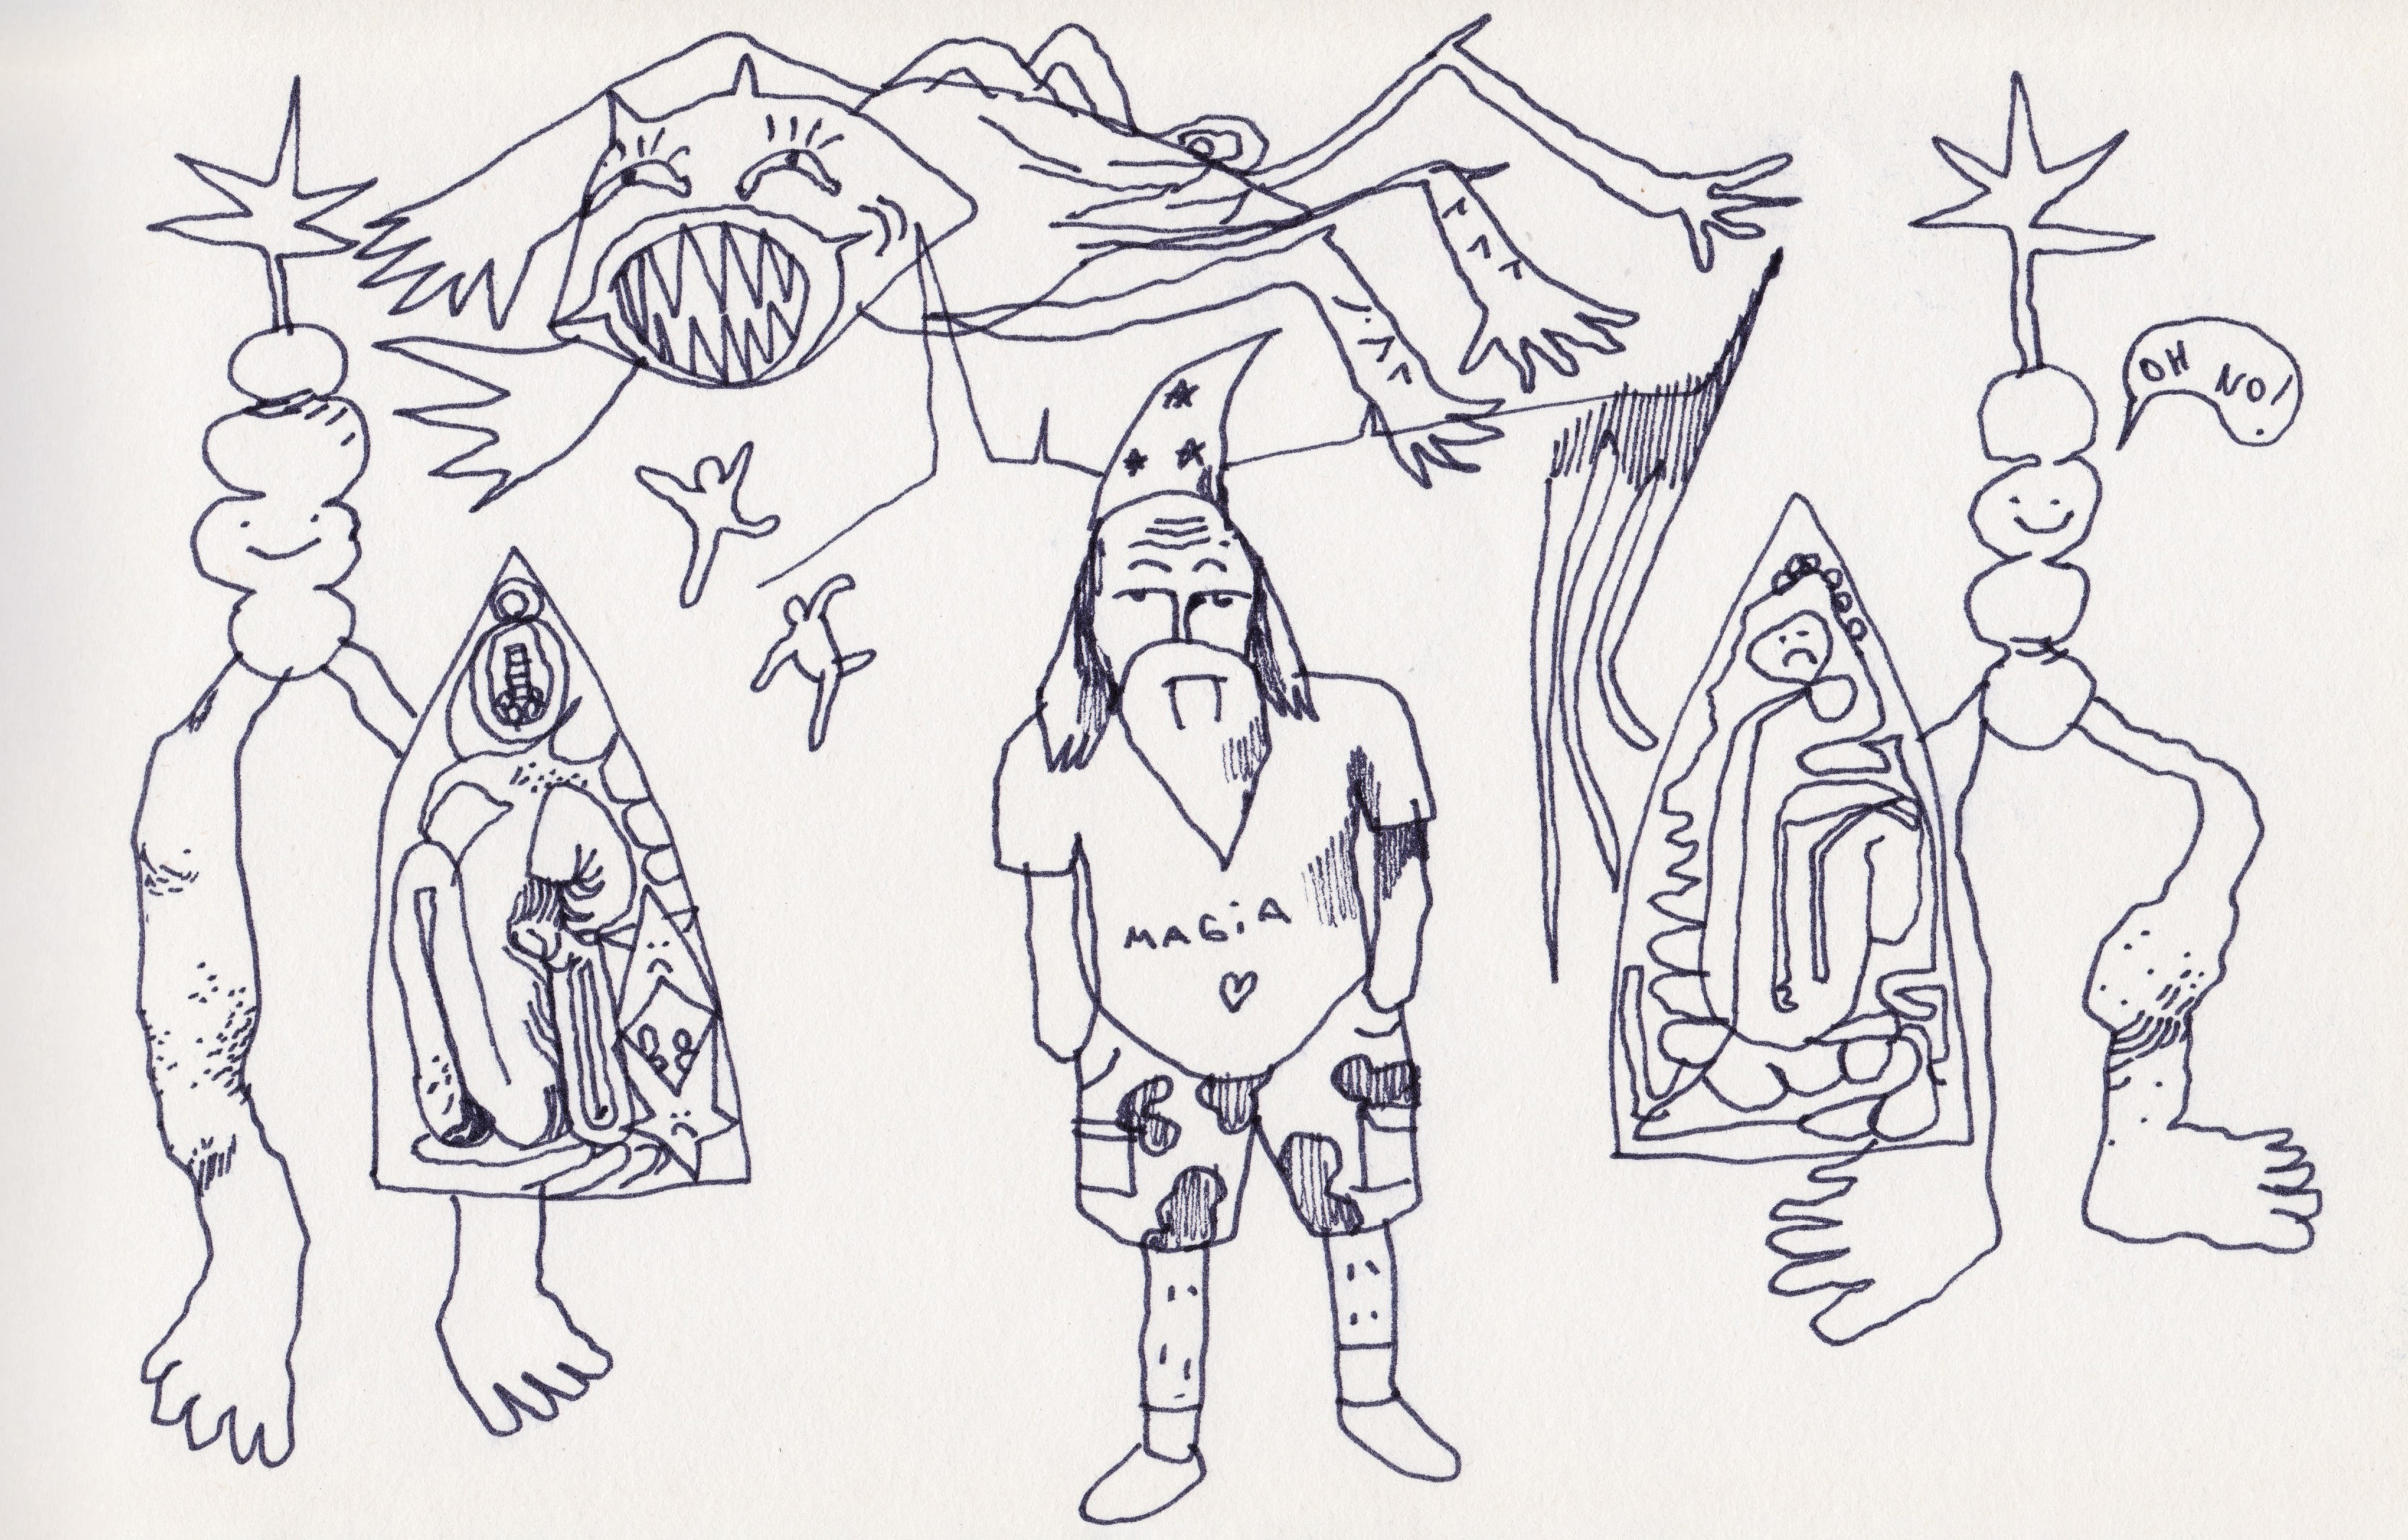 OH NO!
MAGiA